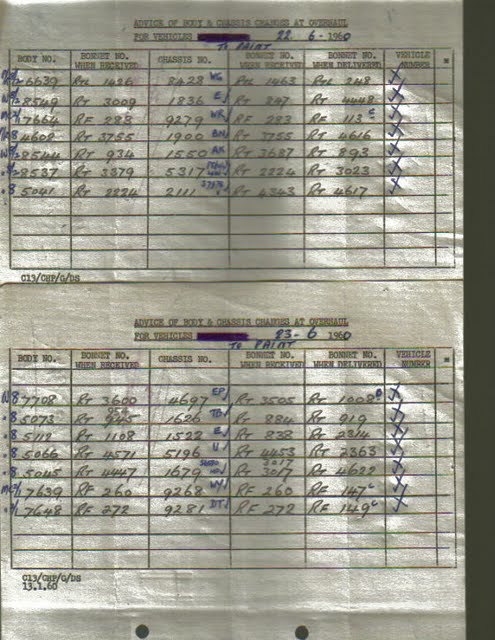 ADVICE OF BODY & CHASSIS CHANGES AT OVERHAUL
FOR VEHICLES 22 - 6 - 1960
TO PAINT
BODY NO. BONNET NO. WHEN RECEIVED CHASSIS NO. BONNET NO. WHEN RECEIVED BONNET NO. WHEN DELIVERED VEHICLE NUMBER
6639 RTL 1426 8428 WG RTL 1463 RTL 248
8549 RT 3009 1836 E RT 247 RT 4448
7664 RF 283 9279 WR RF 283 RF 113 C
4609 RT 3755 1900 BN RT 3755 RT 4616
8544 RT 934 1550 AK RT 3687 RT 893
8537 RT 3379 5317 RT 2224 RT 3023
8 5041 RT 2224 2111 RT 4343 RT 4617
C13/CHP/G/DS
ADVICE OF BODY & CHASSIS CHANGES AT OVERHAUL
FOR VEHICLES 23 - 6 1960
TO PAINT
BODY NO. BONNET NO. WHEN RECEIVED CHASSIS NO. BONNET NO. BONNET NO. WHEN DELIVERED VEHICLE NUMBER
8 7708 RT 3600 4697 EP RT 3505 RT 1008 D
8 5073 RT 945 1626 TB RT 884 RT 919
8 5112 RT 1108 1522 E RT 838 RT 2314
8 5066 RT 4571 5196 RT 4453 RT 2363
8 5045 RT 4447 1679 RT 3017 RT 4622
7639 RF 260 9268 WY RF 260 RF 147 C
7648 RF 272 9281 DT RF 272 RF 149 C
C13/CHP/G/DS
13.1.60